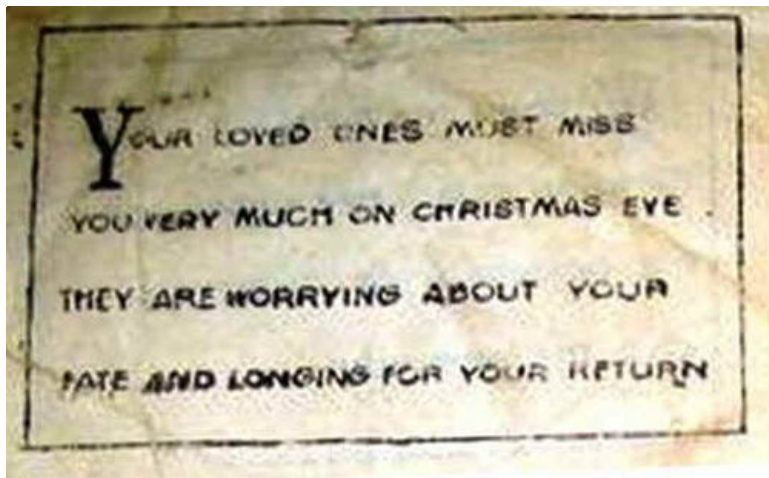 YOUR LOVED ONES MUST MISS
YOU VERY MUCH ON CHRISTMAS EVE .
THEY ARE WORRYING ABOUT YOUR
FATE AND LONGING FOR YOUR RETURN